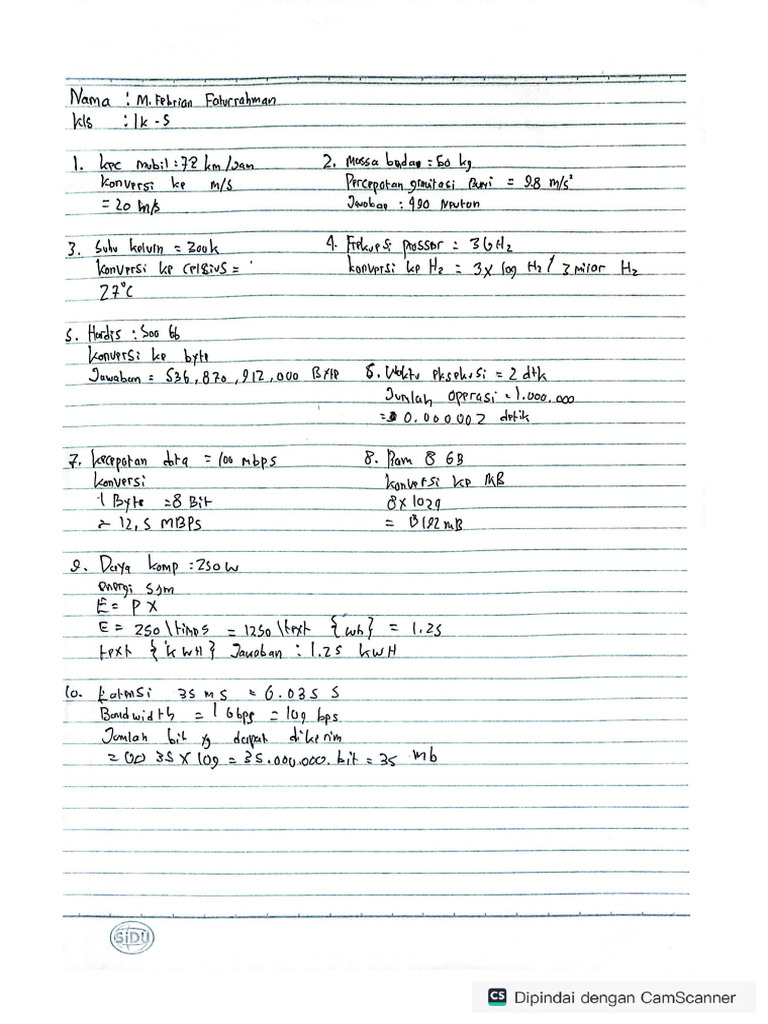 Nama : M. Febrian Faturrahman
kls : 1k - S
1. kec mobil : 72 km/Jam
konversi ke m/s
= 20 m/s
2. Massa badan = 50 kg
Percepatan gravitasi Bumi = 9.8 m/s²
Jawaban : 490 Newton
3. Suhu kelvin = 300k
konversi ke celsius =
27°C
4. Frekuesi prossor = 3 GHz
konversi ke Hz = 3 x 109 Hz / 3 miliar Hz
5. Hardis : 500 Gb
konversi ke byte
Jawaban = 536,870,912,000 Byte
6. Waktu eksekusi = 2 dtk
Jumlah operasi = 1.000.000
= 0.000002 detik
7. kecepatan data = 100 mbps
konversi
1 Byte = 8 Bit
= 12,5 MBPs
8. Ram 8 GB
konversi ke MB
8 x 1024
= 8192 mB
9. Daya komp : 250 w
energi 5jm
E = P X
E = 250 \times = 1250 \text {wh} = 1.25
text {kWH} Jawaban : 1.25 kWH
10. Latensi 35 ms = 0.035 s
Bandwidth = 1 Gbps = 109 bps
Jumlah bit yg dapat dikerim
= 00 35 X 109 = 35.000.000. bit = 35 mb
SiDU
CS Dipindai dengan CamScanner